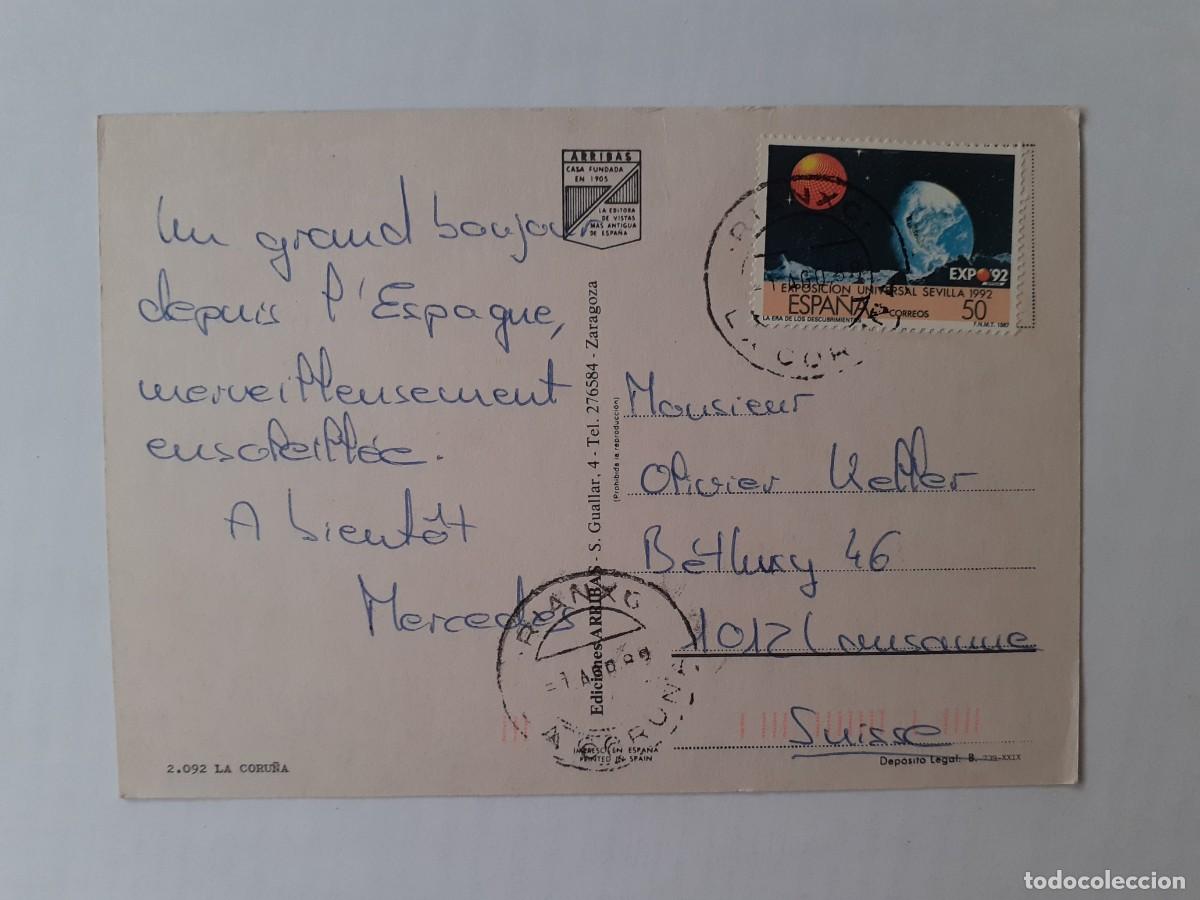 Un grand bonjour
depuis l'Espagne,
merveilleusement
ensoleillée.
A bientôt
Mercedes
ARRIBAS
CASA FUNDADA
EN 1905
LA EDITORA
DE VISTAS
MAS ANTIGUA
DE ESPAÑA
Ediciones ARRIBAS - S. Guallar, 4 - Tel. 276584 - Zaragoza
(Prohibida la reproducción)
EXPO'92
EXPOSICION UNIVERSAL SEVILLA 1992
ESPAÑA
CORREOS
50
LA ERA DE LOS DESCUBRIMIENTOS
F.N.M.T. 1987
RIANXO
LA COR
Monsieur
Olivier Keller
Béthusy 46
1012 Lausanne
Suisse
RIANXO
-1 AGO 89
LA CORUÑA
IMPRESO EN ESPAÑA
PRINTED IN SPAIN
Depósito Legal: B.
2.092 LA CORUÑA
todocoleccion